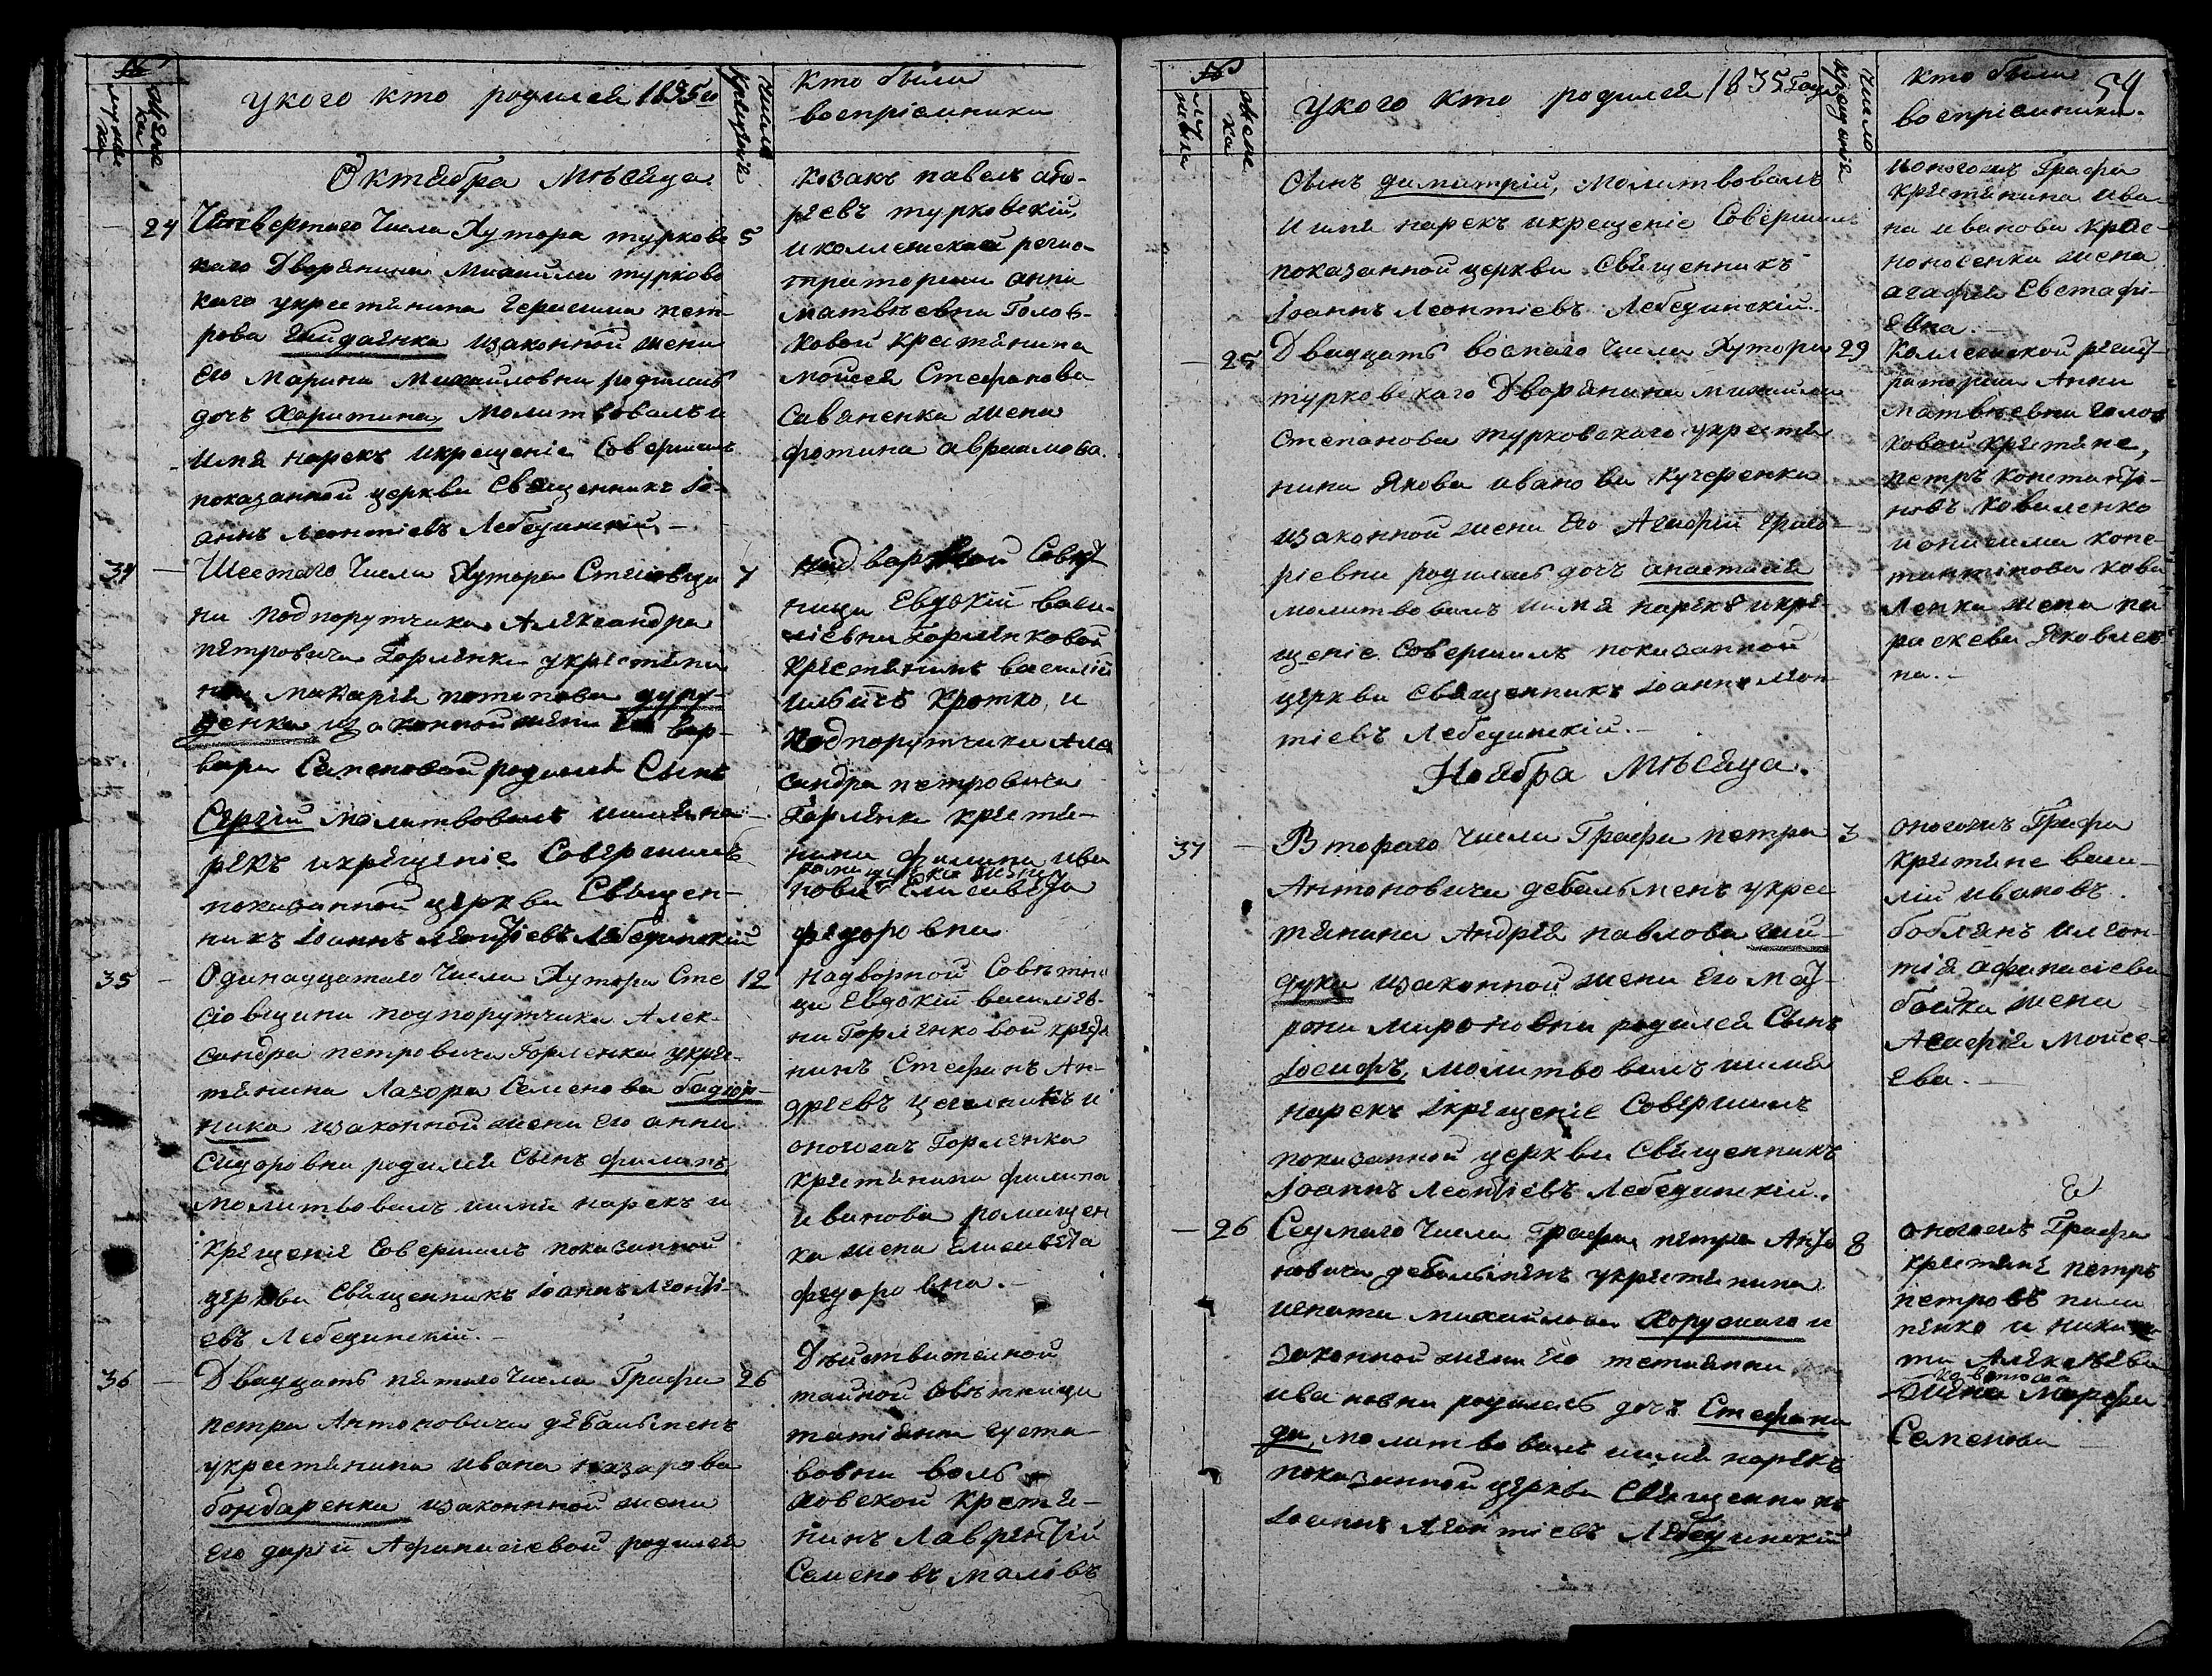 №
мужеска
женска
у кого кто родился 1835го
Число крещенія
кто были
воспріемники
Октября Мѣсяца.
24
Четвертаго Числа Хутора турковс
каго Дворянина Михаила турковс
каго укрестянина герасима пет-
рова изаконной жени
его Марини Михайловни родилась
дочь Харитина, Молитвовалъ и
имя нарекъ икрещеніе Совершилъ
показанной церкви Священникъ Іо-
аннъ Леонтіевъ Лебединскій.
5
козакъ павелъ
турковскій,
иколлежской регис-
траторши анни
Матвѣевни Голов-
ковой крестянина
Моисея Стефанова
Саваненка жена
фотина авраамова.
34
Шестаго Числа Хутора
ни подпорутчика Александра
петровича Горленка укрестяни
на Макарія потапова дуру-
денка изаконной жени его вар-
вари Семеновой родился Сынъ
Сергій Молитвовалъ иимя на-
рекъ икрещеніе Совершилъ
показанной церкви Священ-
никъ Іоаннъ Леонтіевъ Лебединскій
7
надворной Совѣт
ници Евдокіи васи-
ліевни Горленковой
крестянинъ василій
Кротко, и
подпорутчика Алек
сандра петровича
Горленка крестя-
нина филипа ива
ромащенка жена
нова Елисавета
федоровна
35
Одинадцатаго Числа Хутора Сте
сіовщини подпорутчика Алек-
сандра петровича Горленка укрес-
тянина Лазора Семенова
ника изаконной жени его анни
Сидоровни родился Сынъ филипъ
Молитвовалъ иимя нарекъ и
крещеніе Совершилъ показанной
церкви Священникъ Іоаннъ Леонті-
евъ Лебединскій.
12
надворной Совѣтни
ци Евдокіи василіев-
ни Горленковой крестя
нинъ Стефанъ Ан-
дреевъ и
оногожъ Горленка
крестянина филипа
иванова ромащен
ка жена Елисавета
федоровна.
36
Двадцать пятаго Числа Графа
петра Антоновича дебальменъ
укрестянина ивана назарова
бондаренка изаконнной жени
его даріи Афанасіевой родился
26
Дѣйствителной
тайной Совѣтници
татіяни густа-
вовни волъ
ховской крестя-
нинъ Лаврентій
Семеновъ Маловъ
№
мужеска
женска
у кого кто родился 1835 Года
Число крещенія
кто были
воспріемники.
54
Сынъ димитрій, Молитвовалъ
и имя нарекъ икрещеніе Совершилъ
показанной церкви Священникъ
Іоаннъ Леонтіевъ Лебединскій.
ионогожъ Графа
крестянина ива-
на иванова крас-
ноносенка жена
агафія Евстафі-
евна.
25
Двадцать восмаго Числа Хутора
турковскаго Дворянина Михаила
Степанова турковскаго укрестя
нина Якова иванова Кучеренка
изаконной жени Его Агафіи григо-
ріевни родилась дочь анастасія
молитвовалъ иимя нарекъ икре-
щеніе Совершилъ показанной
церкви Священникъ Іоаннъ Леон-
тіевъ Лебединскій.
29
Коллежской регист-
раторши Анни
Матвѣевни голов
ковой крестяне,
петръ Константи-
новъ Коваленко
и онисима конс-
тантінова кова
ленка жена па
раскева Яковлев
на.
Ноября Мѣсяца.
37
Втораго Числа Графа петра
Антоновича дебальменъ укрес
тянина Андрея павлова гай-
дука изаконной жени его Мат-
рони Мироновни родился Сынъ
Іосифъ, Молитвовалъ иимя
нарекъ ікрещеніе Совершилъ
показанной церкви Священникъ
Іоаннъ Леонтіевъ Лебединскій.
3
оногожъ Графа
крестяне васи-
лій ивановъ
боблянъ илеон-
тія афанасіева
бойка жена
Агафія Моисе-
Ева.
26
Седмаго Числа Графа петра Анто
новича дебальменъ укрестянина
игната Михайлова Хоружаго и
законной жени его тетіянни
ивановни родилась дочь Стефани
да, молитвовалъ иимя нарекъ
показанной церкви Священникъ
Іоаннъ Леонтіевъ Лебединскій
8
оногожъ Графа
крестяне петръ
петровъ пили
пенко и ники
ти Алексѣева
жена Марфа
Семенова